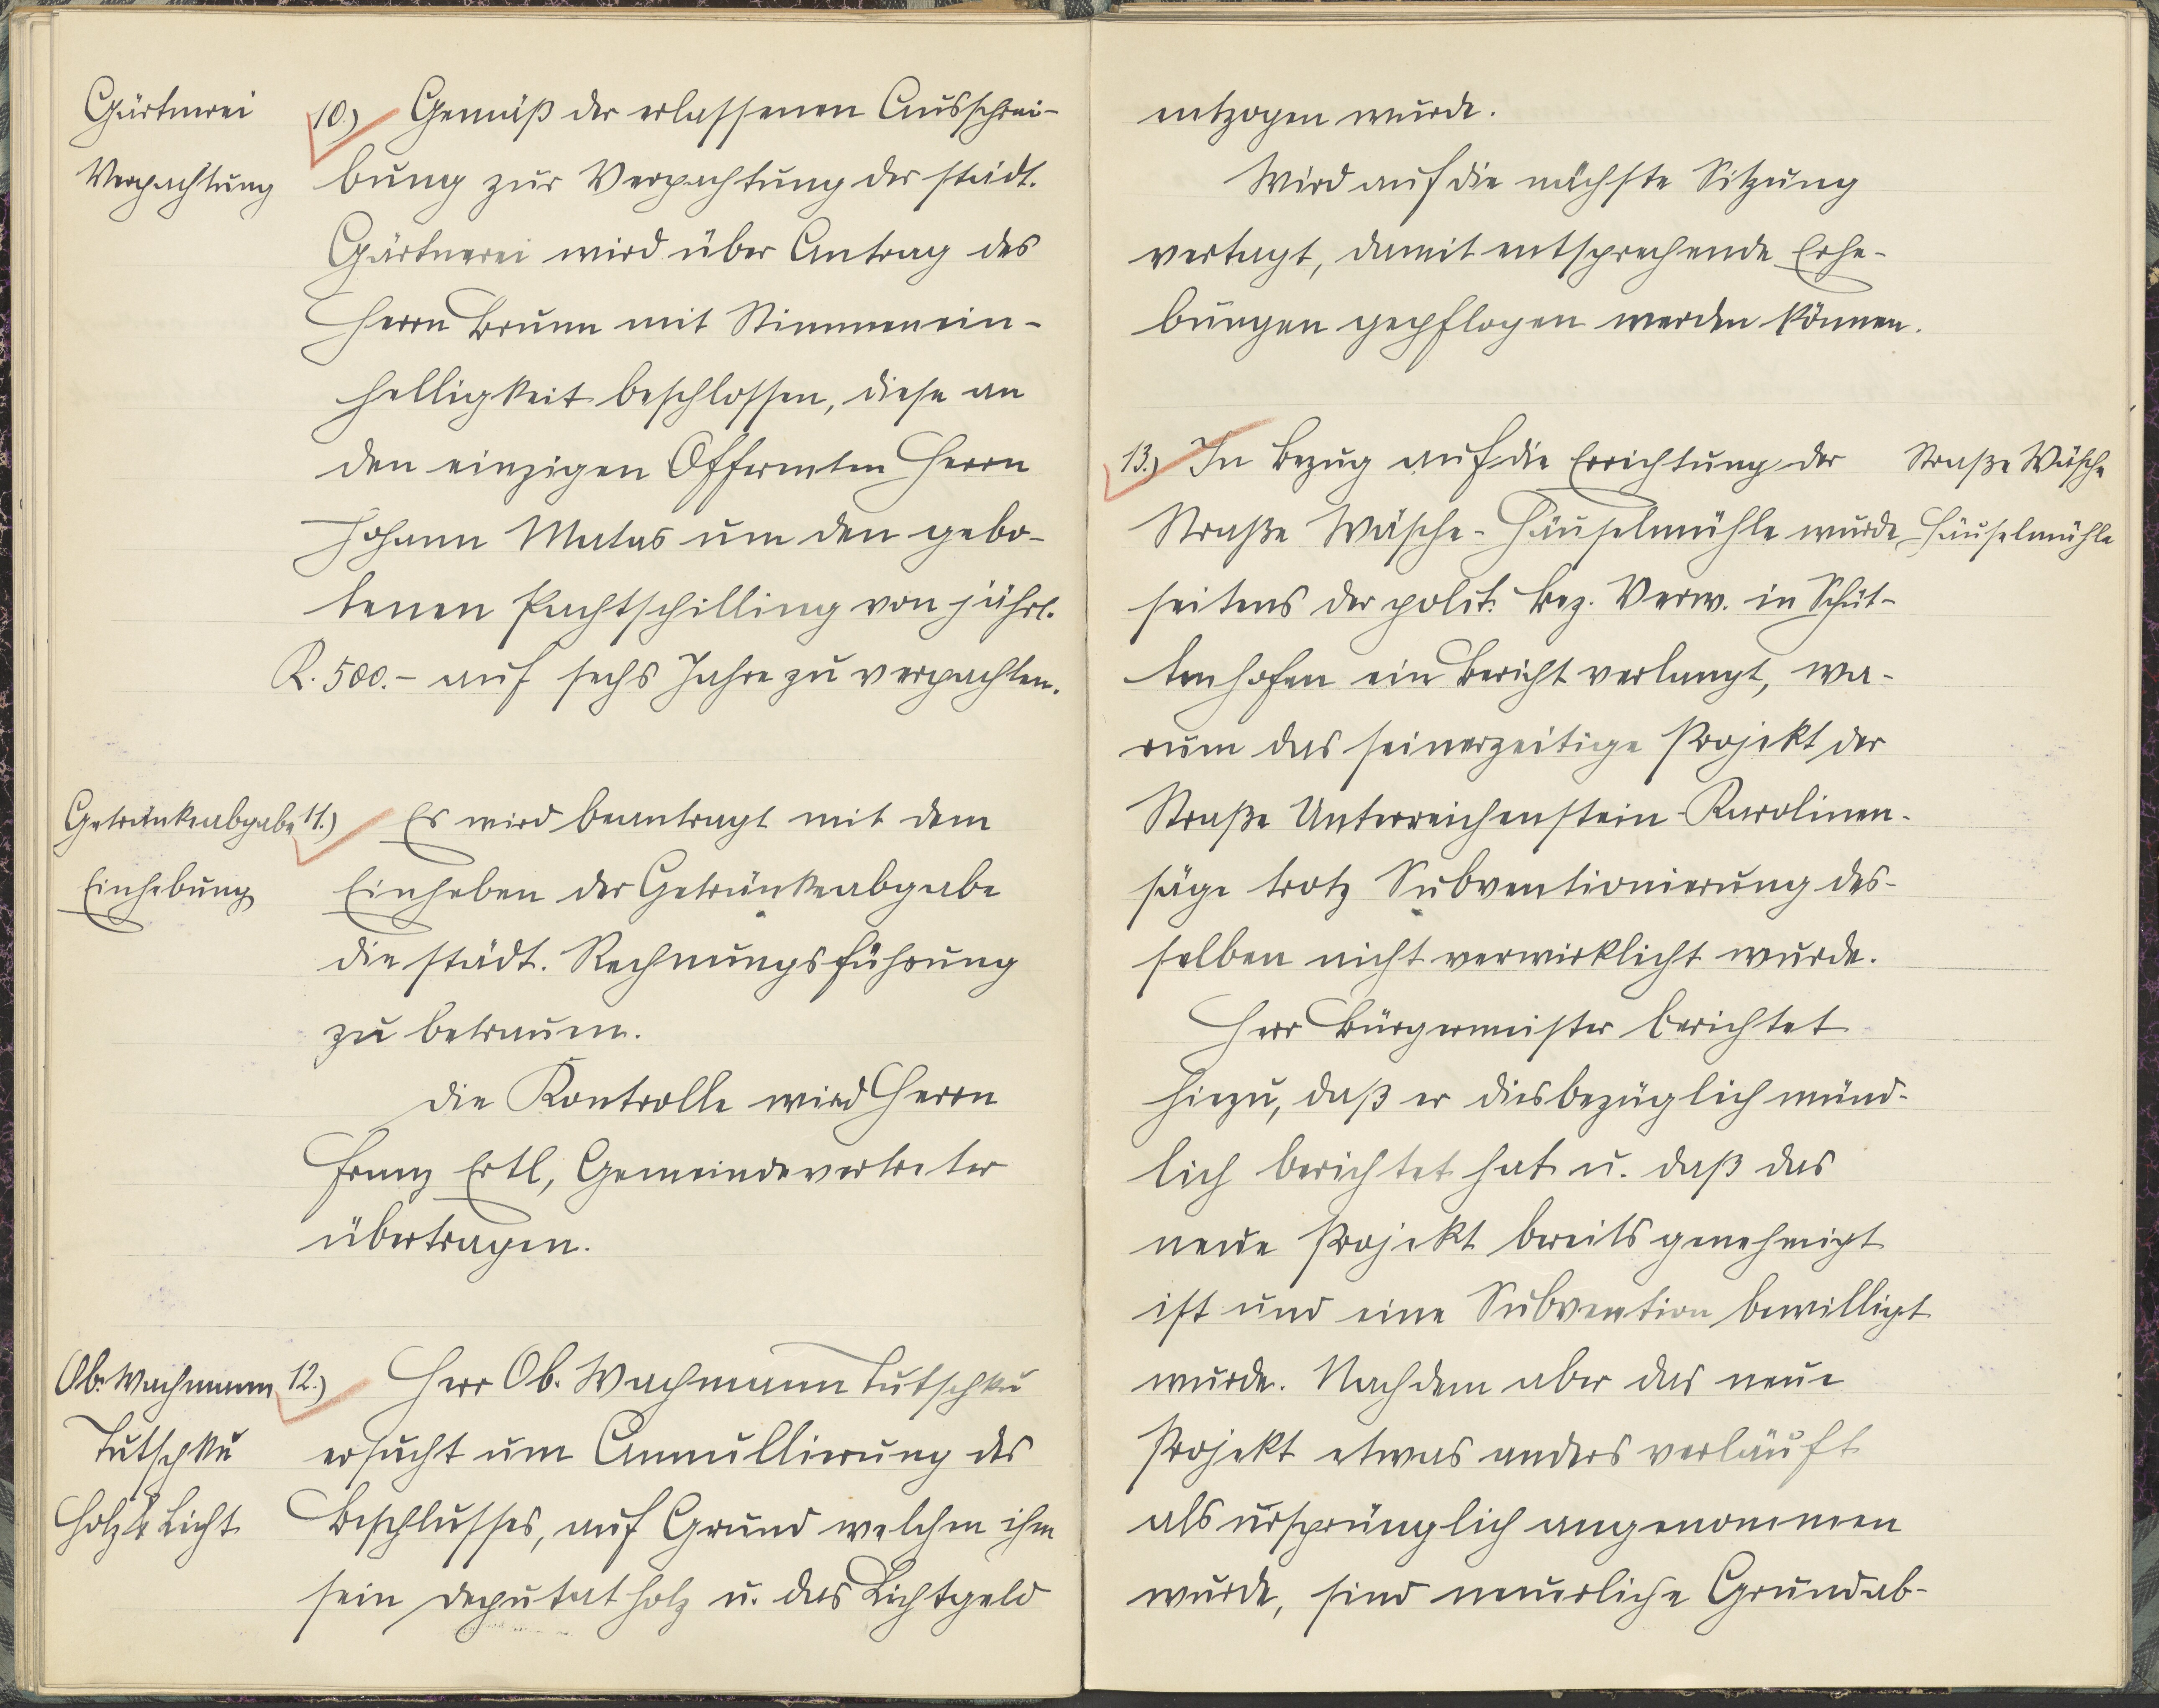 Gärtnerei
Verpachtung
10.) Gemäß der erlassenen Ausschrei-
bung zur Verpachtung der städt.
Gärtnerei wird über Antrag des
Herrn Brunn mit Stimmenein-
helligkeit beschlossen, diese an
den einzigen Offerenten Herrn
Johann Matas um den gebo-
tenen Pachtschilling von jährl.
K. 500.- auf sechs Jahre zu verpachten.
Getränkeabgabe
Einhebung
11.) Es wird beantragt mit dem
Einheben der Getränkeabgabe
die städt. Rechnungsführung
zu betrauen.
Die Kontrolle wird Herrn
Franz Ertl, Gemeindevertreter
übertragen.
Ob. Wachmann
Tutschku
Holz & Licht
12.) Herr Ob. Wachmann Tutschku
ersucht um Annullierung des
Beschlusses, auf Grund welchen ihm
sein Deputatholz u. das Lichtgeld
entzogen wurde.
Wird auf die nächste Sitzung
vertagt, damit entsprechende Erhe-
bungen gepflogen werden können.
13.) In Bezug auf die Errichtung der
Straße Wäsche-Häuselmühle wurde
seitens der polit. Bez. Verw. in Schüt-
tenhofen ein Bericht verlangt, wa-
rum das seinerzeitige Projekt der
Straße Unterreichenstein-Karolinen-
säge trotz Subventionierung des-
selben nicht verwirklicht wurde.
Herr Bürgermeister berichtet
hiezu, daß er diesbezüglich münd-
lich berichtet hat u. daß das
neue Projekt bereits genehmigt
ist und eine Subvention bewilligt
wurde. Nachdem aber das neue
Projekt etwas anders verläuft
als ursprünglich angenommen
wurde, sind neuerliche Grundab-
Straße Wäsche
Häuselmühle